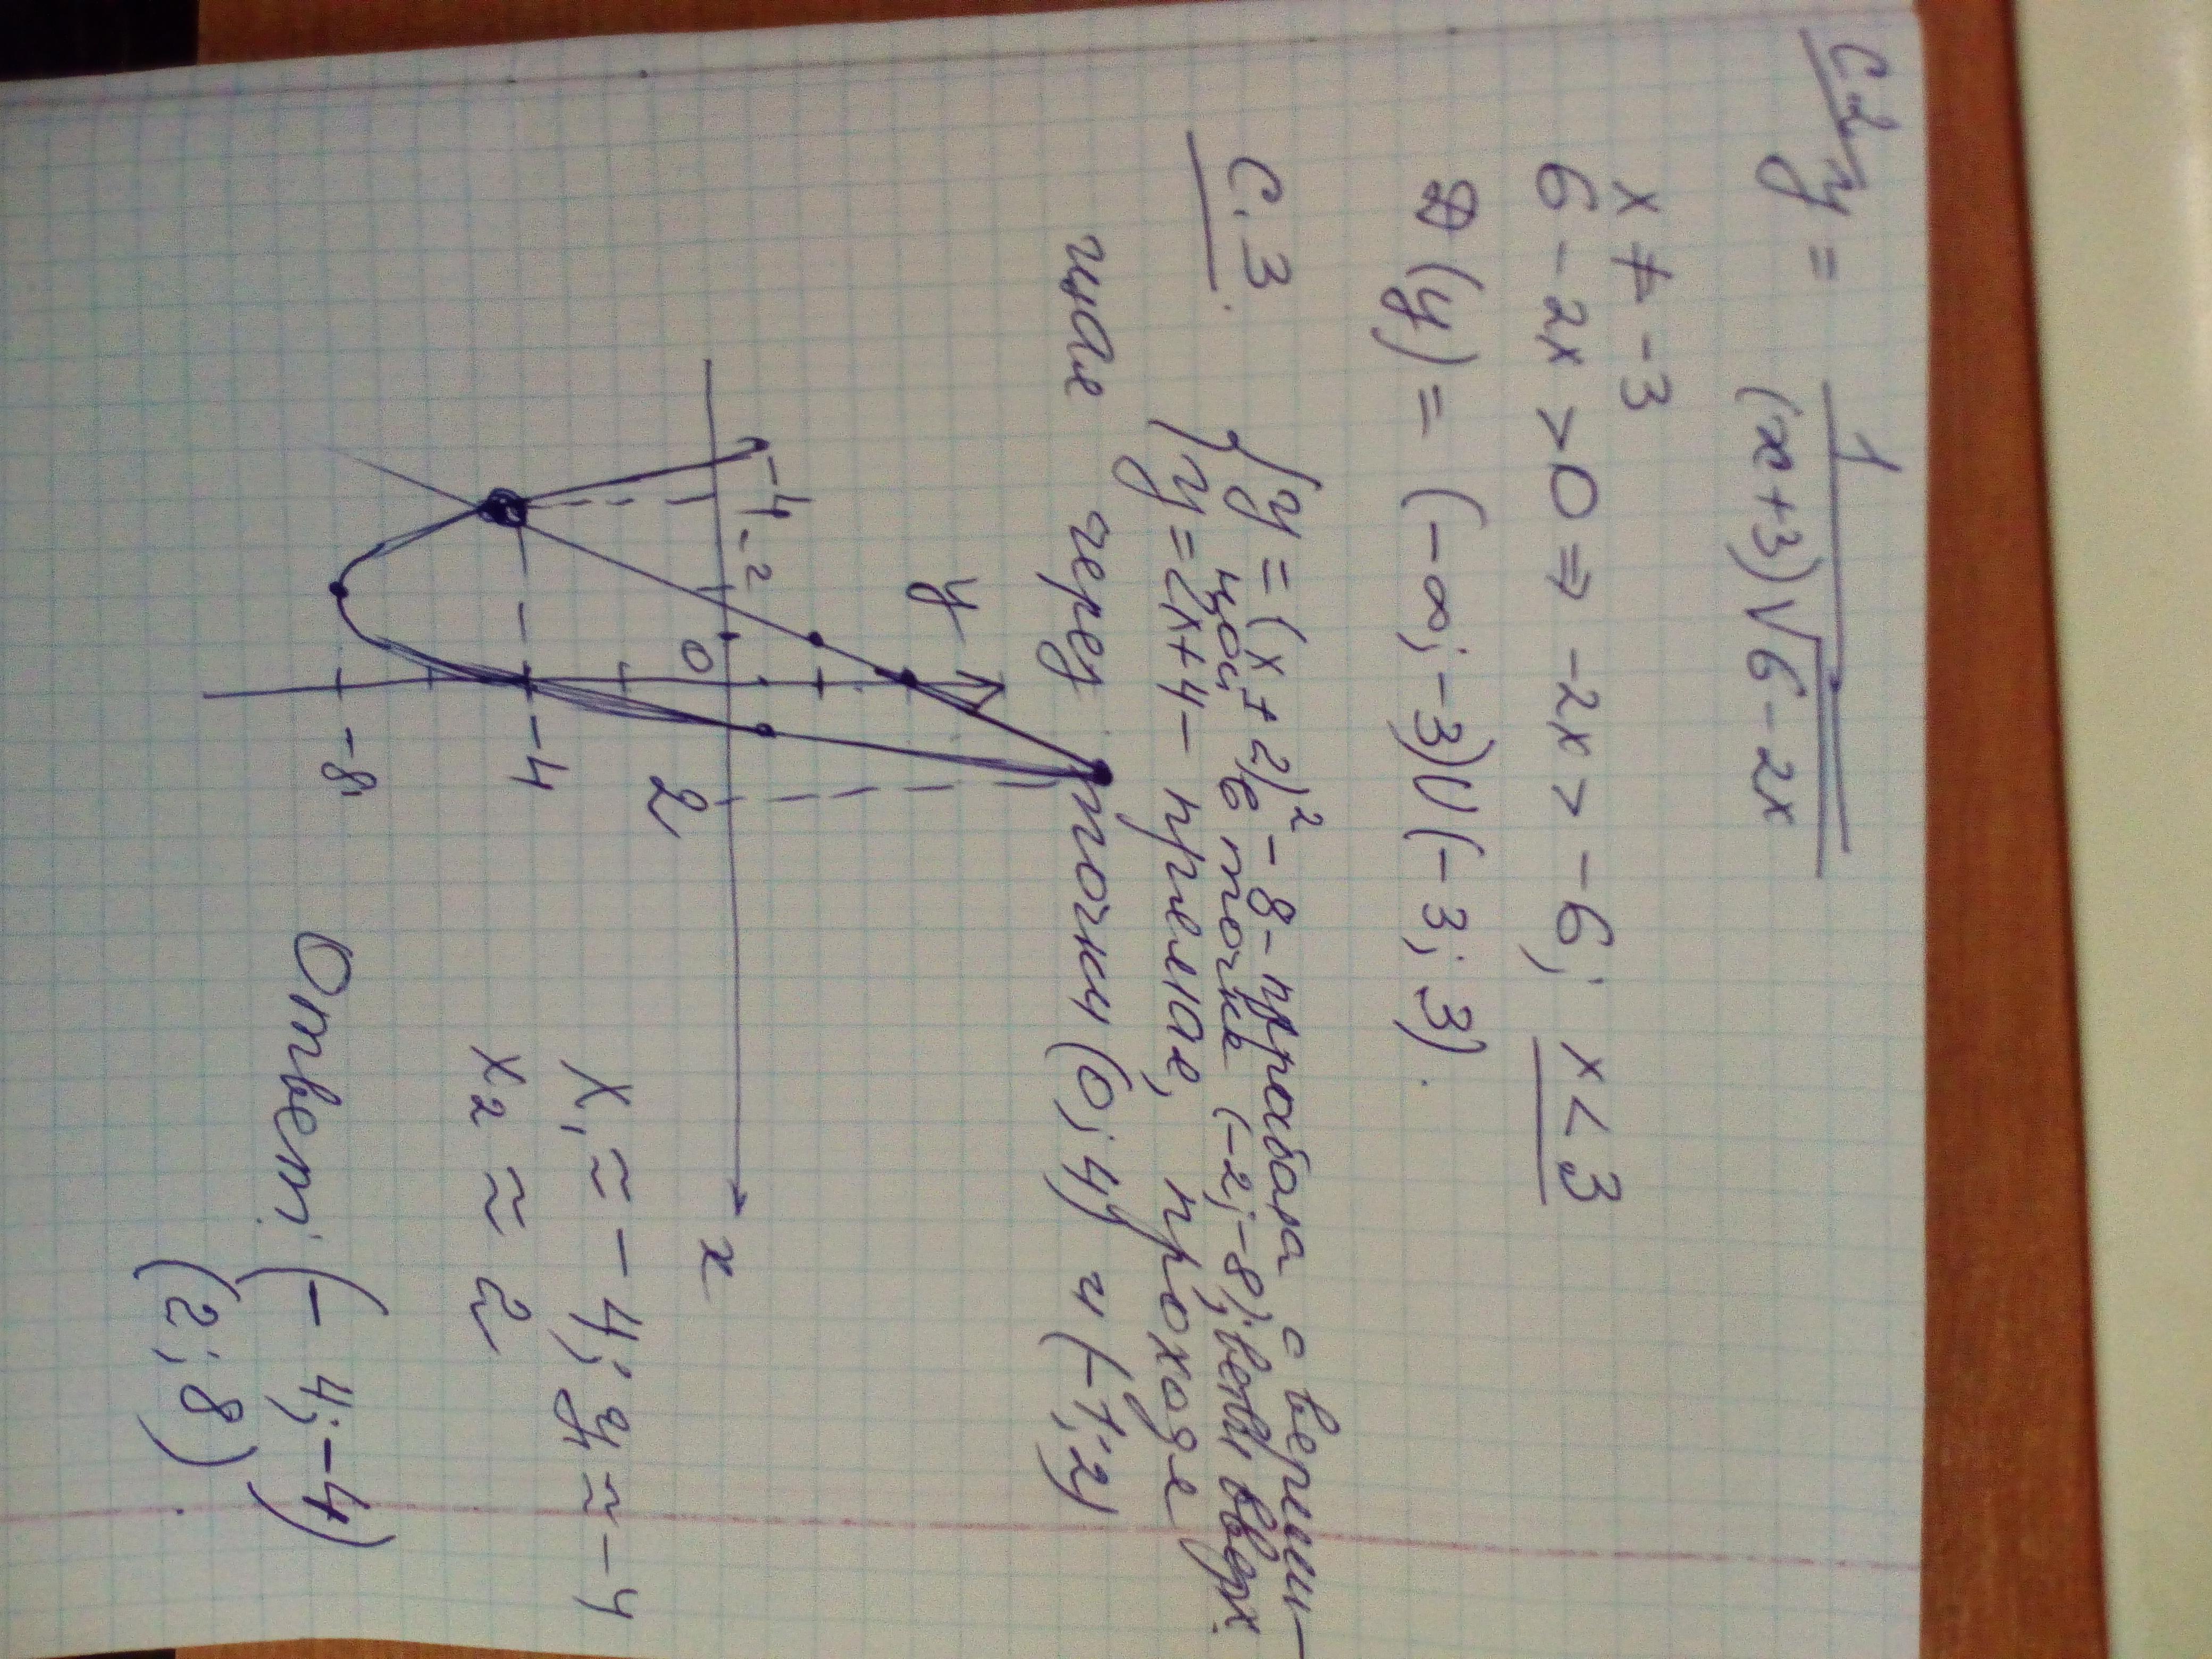 С.2 y = 1 / (x+3)√6-2x
x ≠ -3
6-2x > 0 ⇒ -2x > -6; x < 3
D(y) = (-∞; -3)U(-3; 3).
С.3. { y = (x+2)² - 8 - парабола с верши-
ной в точке (-2; -8), ветви вверх
y = 2x+4 - прямая, проходя
щая через точки (0; 4) и (-1; 2)
y
-4 -2
0 2 x
-4
-8
x₁ ≈ -4; y ≈ -4
x₂ ≈ 2
Ответ: (-4; -4)
(2; 8).